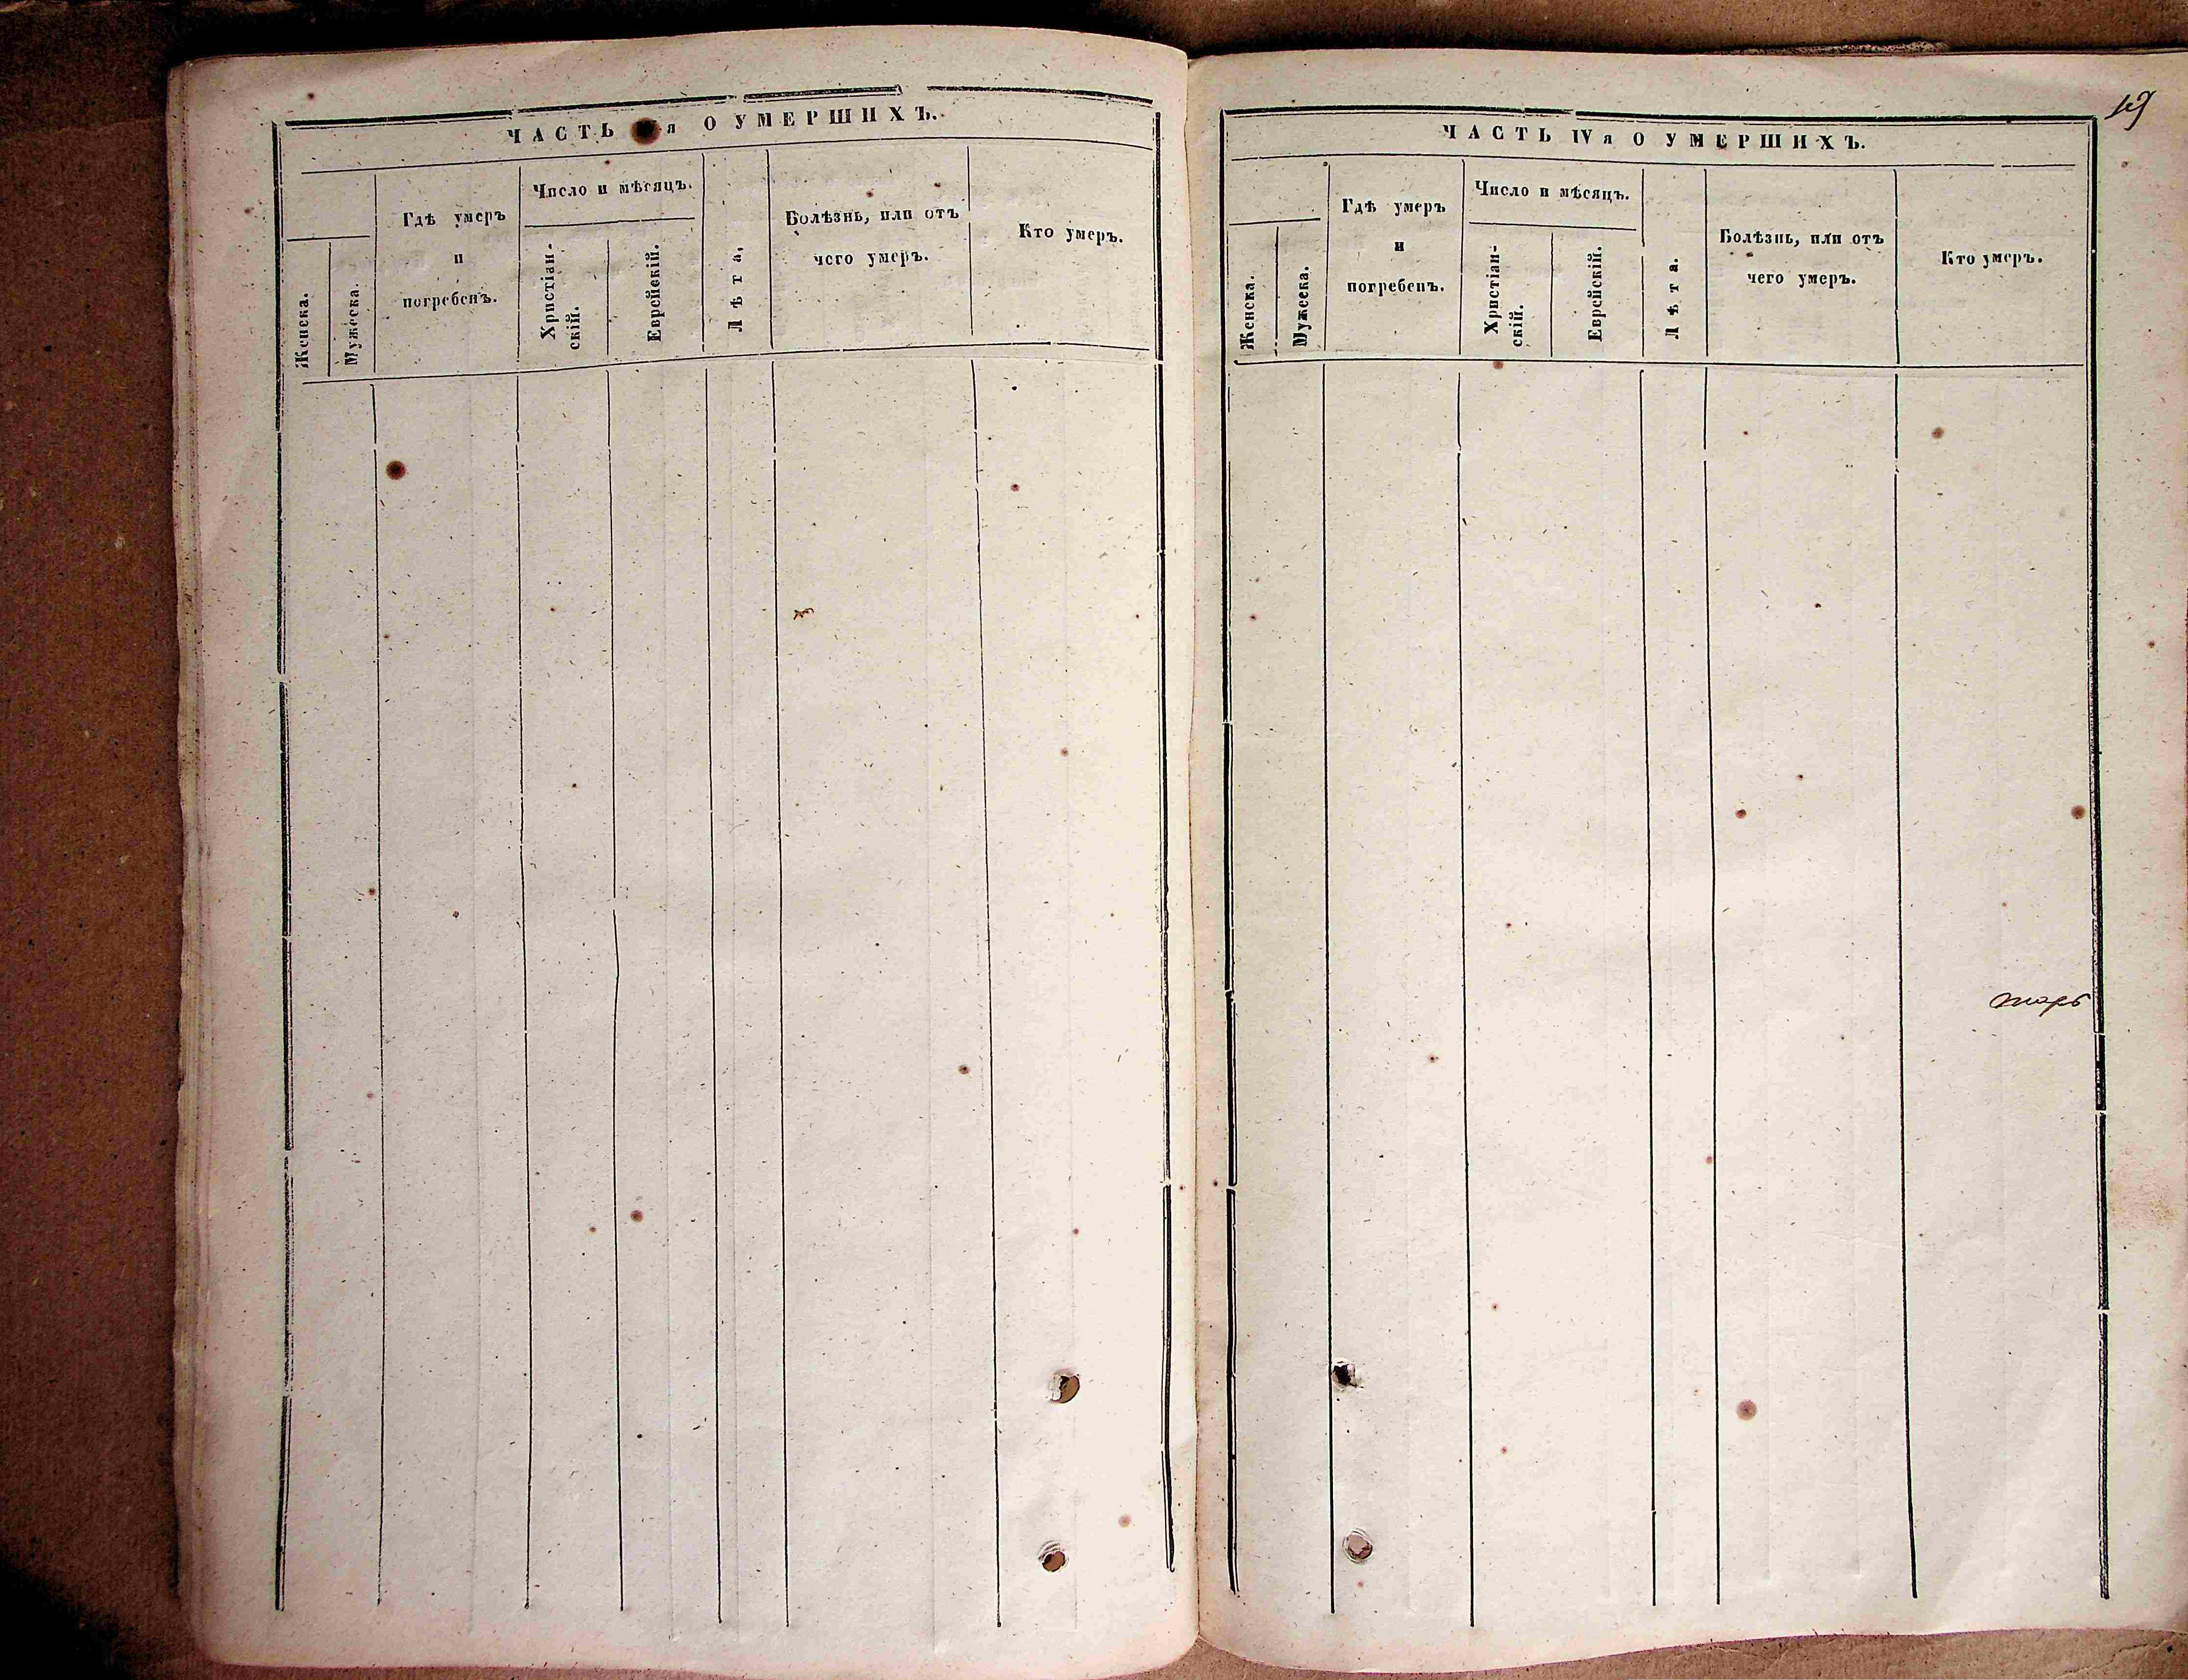 ЧАСТЬ я О УМЕРШИХЪ.
Женска.
Мужеска.
Гдѣ умеръ
и
погребенъ.
Число и мѣсяцъ.
Христіан-
скій.
Еврейскій.
Лѣта,
Болѣзнь, или отъ
чего умеръ.
Кто умеръ.
49
ЧАСТЬ IVя О УМЕРШИХЪ.
Женска.
Мужеска.
Гдѣ умеръ
и
погребенъ.
Число и мѣсяцъ.
Христіан-
скій.
Еврейскій.
Лѣта.
Болѣзнь, или отъ
чего умеръ.
Кто умеръ.